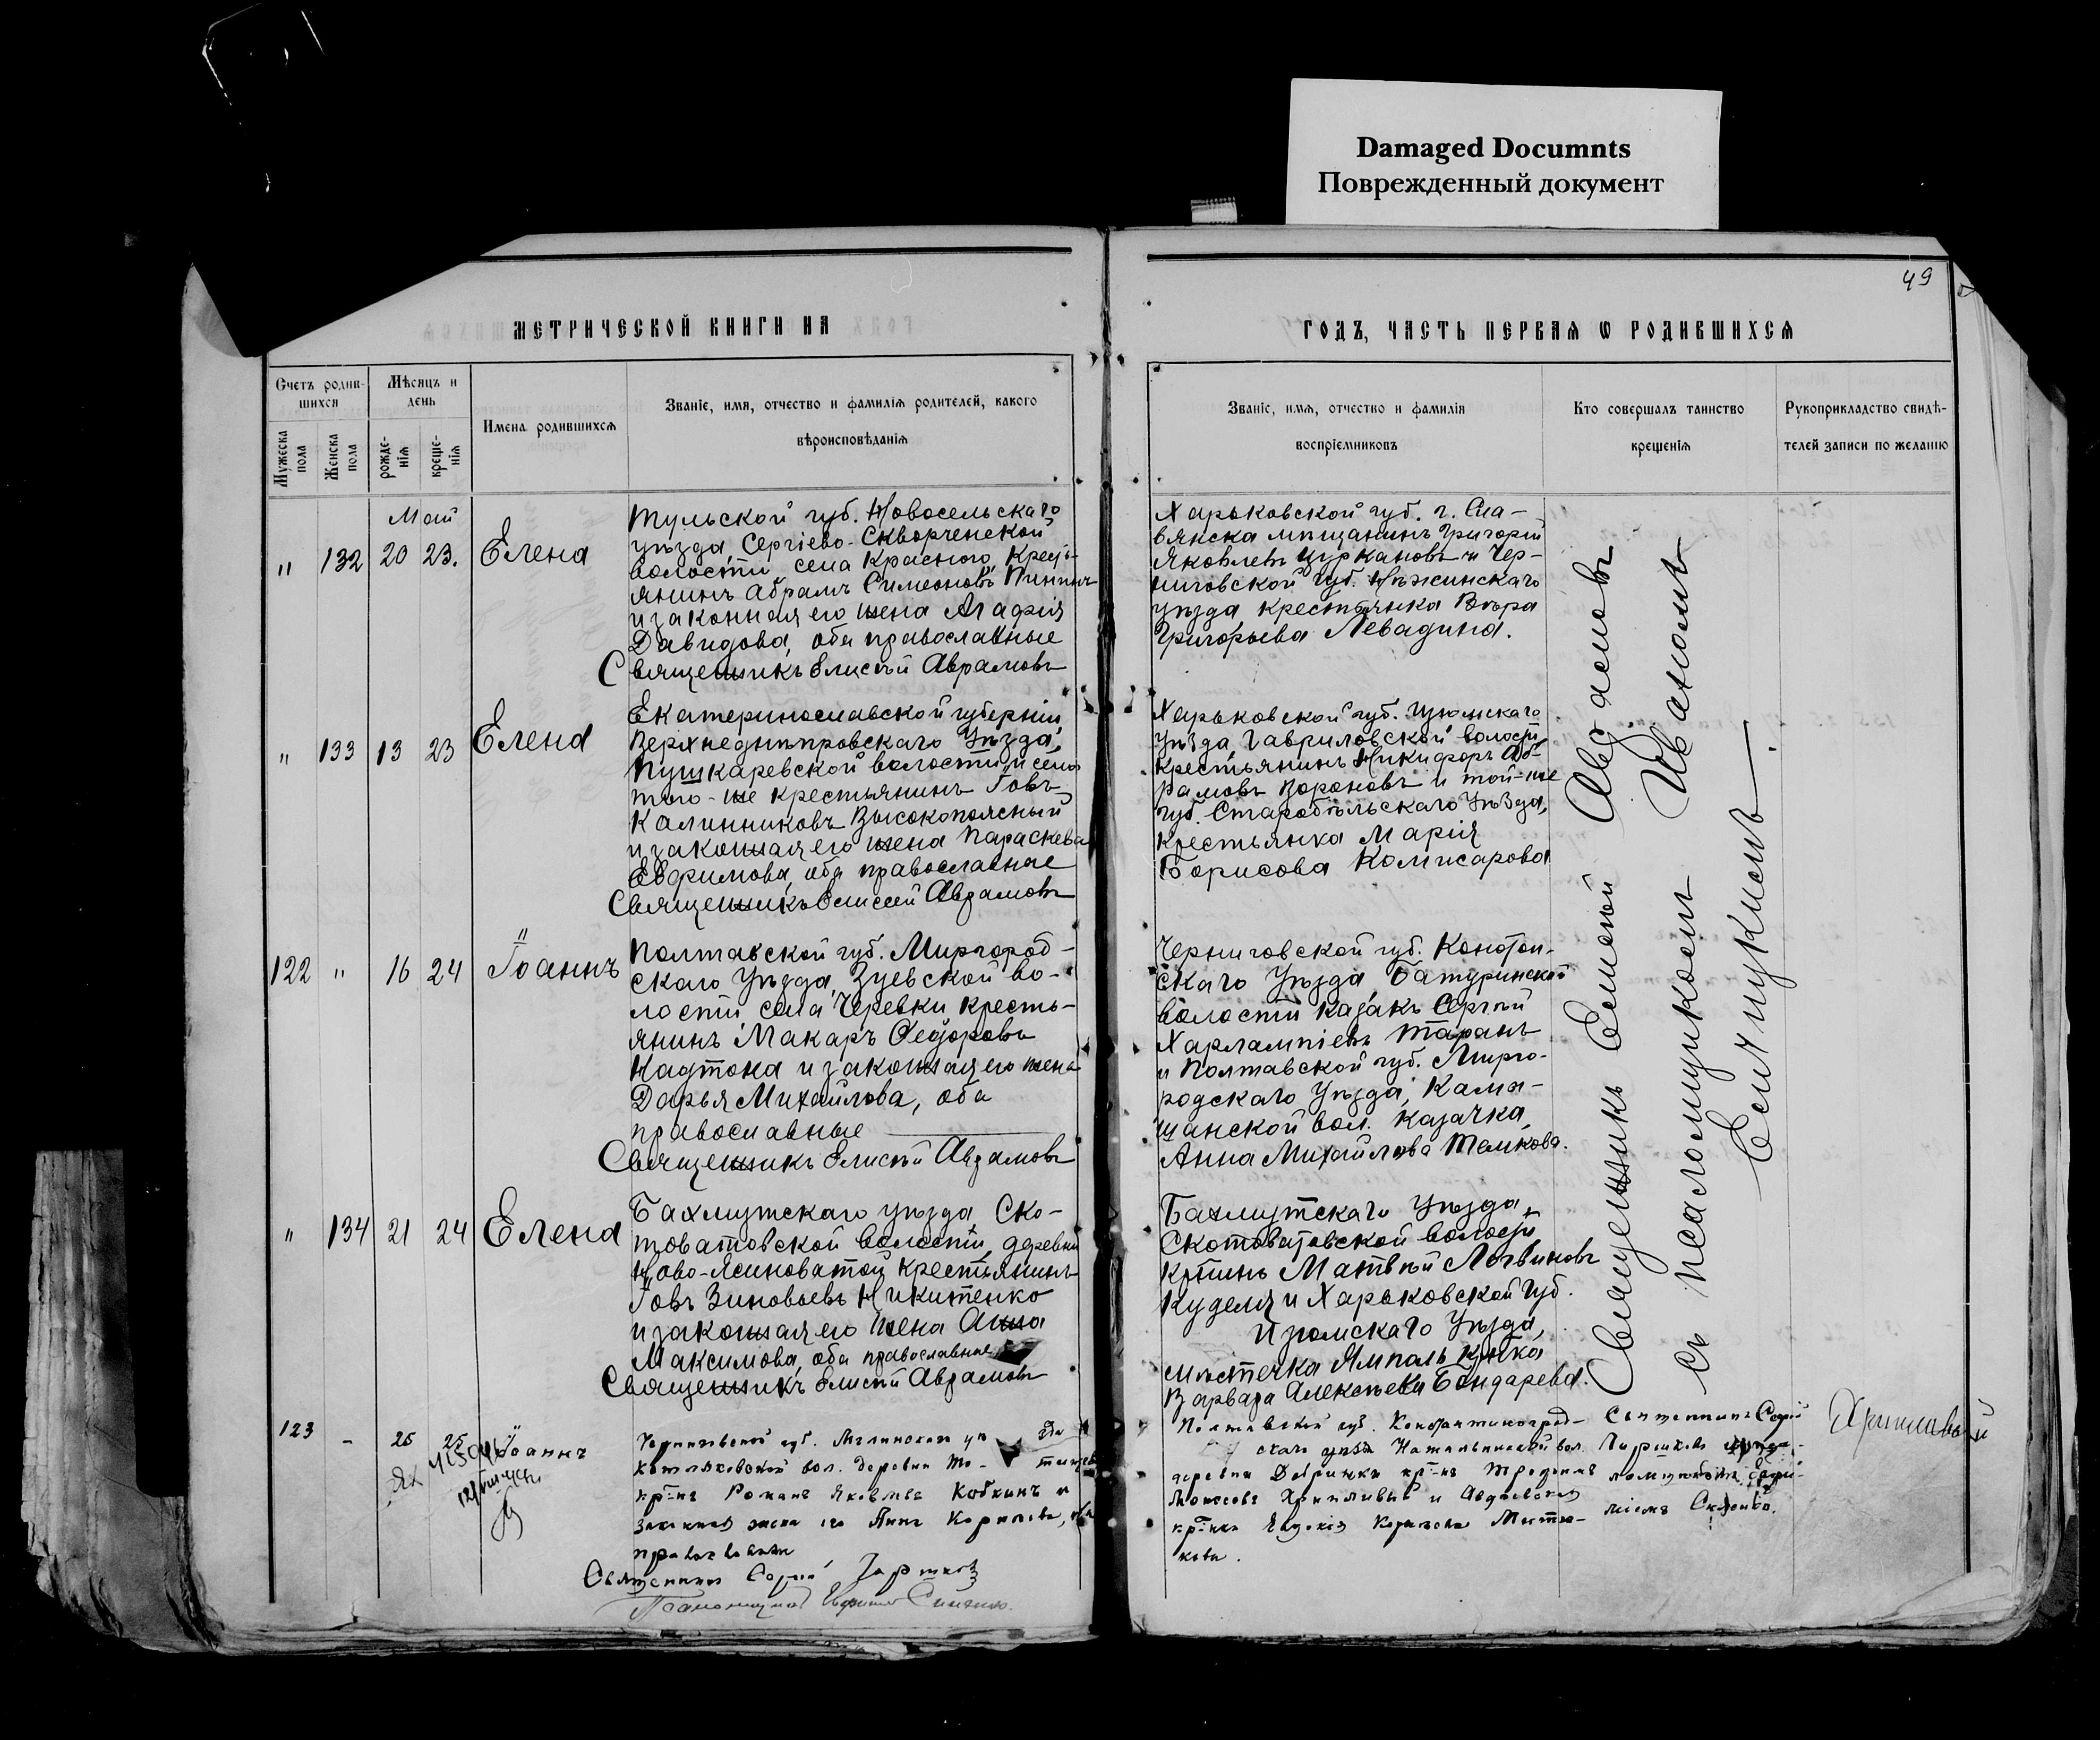 Damaged Documnts
Поврежденный документ
49
МЕТРИЧЕСКОЙ КНИГИ НА
ГОДЪ, ЧАСТЬ ПЕРВАЯ Ѡ РОДИВШИХСЯ
Счетъ родив-
шихся
Мѣсяцъ и
день
Имена родившихся
Званіе, имя, отчество и фамилія родителей, какого
вѣроисповѣданія
Мужеска
пола
Женска
пола
рожде-
нія
креще-
нія
Званіе, имя, отчество и фамилія
воспріемниковъ
Кто совершалъ таинство
крещенія
Рукоприкладство свидѣ-
телей записи по желанію
Май
" 132 20 23. Елена
Тульской губ. Новосельскаго
уѣзда, Сергіево-Скворченской
волости села Краснаго, Кресть-
янинъ Абрамъ Симеоновъ
и законная его жена Агафія
Давидова, оба православные
Священникъ Елисей Аврамовъ
Харьковской губ. г. Сла-
вянска мѣщанинъ Григорій
Яковлевъ Цуркановъ и Чер-
ниговской губ. Нѣжинскаго
уѣзда крестьянка Вѣра
Григорьева Левадина.
" 133 13 23 Елена
Екатеринославской губерніи
Верхнеднѣпровскаго Уѣзда,
Пушкаревской волости и села
того-же крестьянинъ Іовъ
Калинниковъ Высокопоясный
и законная его жена Параскева
Евфимова, оба православные
Священникъ Елисей Аврамовъ
Харьковской губ. Изюмскаго
Уѣзда, Гавриловской волости,
крестьянинъ Никифоръ Аб-
рамовъ Вороновъ и той-же
губ. Старобѣльскаго Уѣзда,
крестьянка Марія
Борисова Комисарова
122 " 16 24 Іоаннъ
Полтавской губ. Миргород-
скаго Уѣзда, Зуевской во-
лости села Черевки кресть-
янинъ Макаръ Ѳедоровъ
Надтока и законная его жена
Дарья Михайлова, оба
православные
Священникъ Елисей Аврамовъ
Черниговской губ. Конотоп-
скаго Уѣзда, Батуринской
волости казакъ Сергѣй
Харлампіевъ Таранъ
и Полтавской губ. Мирго-
родскаго Уѣзда, Камы-
шанской вол. казачка
Анна Михайлова
" 134 21 24 Елена
Бахмутскаго уѣзда Ско-
товатовской волости, деревни
Ново-Ясиноватой крестьянинъ
Іовъ Зиновьевъ Никитенко
и законная его жена Анна
Максимова, оба православные
Священникъ Елисей Аврамовъ
Бахмутскаго Уѣзда,
Скотоватовской волости,
Матвѣй Логвиновъ
Куделя и Харьковской губ.
Изюмскаго Уѣзда,
мѣстечка Ямполь
Варвара Алексѣева Бондарева.
Священникъ Елисей Аврамовъ
съ псаломщикомъ Иваномъ
123 - 25 25 Іоаннъ
Черниговской губ. Мглинскаго
вол. деревни
Романъ Яковлевъ Кобкинъ и
законная жена его Анна
православные
Священникъ Сергій
Полтавской губ. Константиноград-
скаго уѣзда вол.
деревни Трофимъ
Моисеевъ Хриплывый и
Евдокія
кова.
Священникъ Сергій
Хриплывый